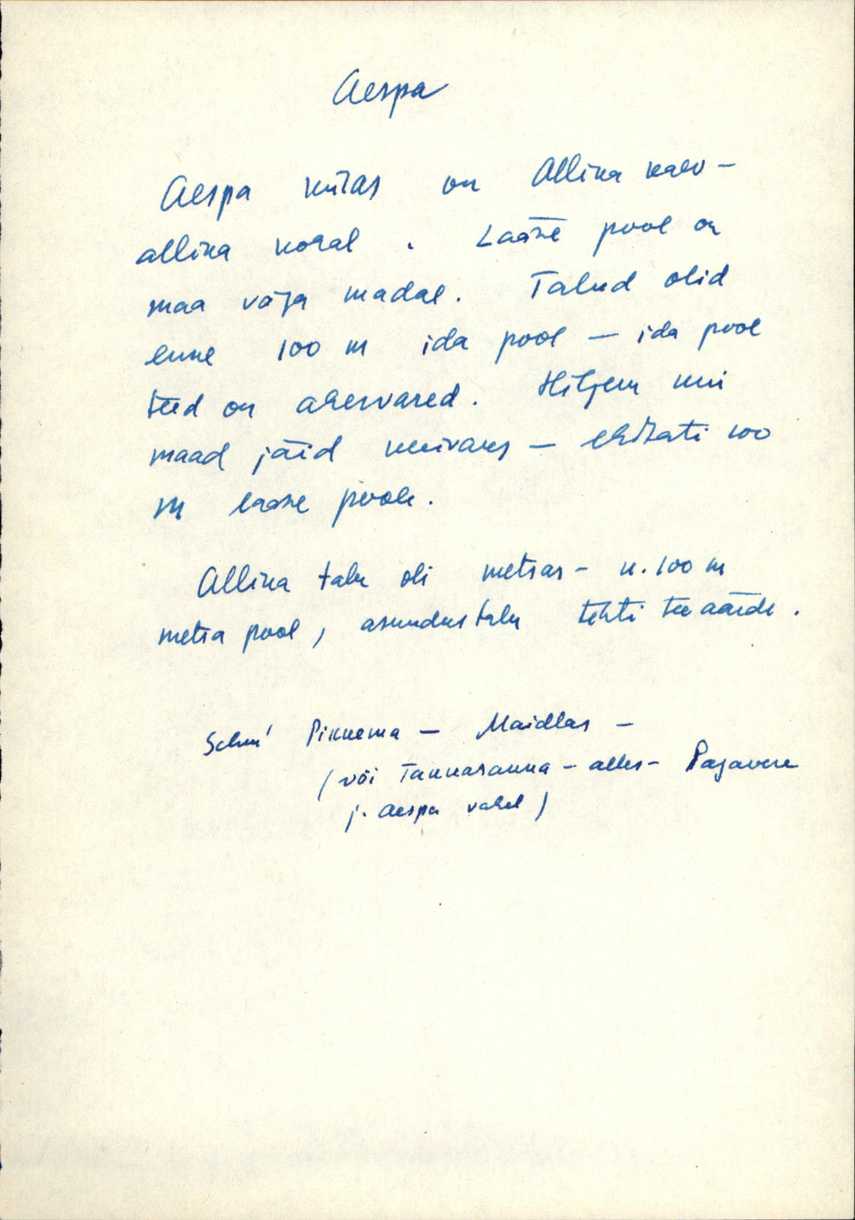 Aespa
Aespa külas on Allika kaev-
allika kohal. Lääne pool on
maa väga madal. Talud olid
enne 100 m ida pool – ida pool
teed on ahervared. Hiljem kui
maad jäid kuivaks – ehitati 100
m lääne poole.
Allika talu oli metsas – u. 100 m
metsa pool, asundustalu tehti tee äärde.
Piknema – Maidlas –
(või Tannasauna – alles – Pajavere
j. Aespa vahel)